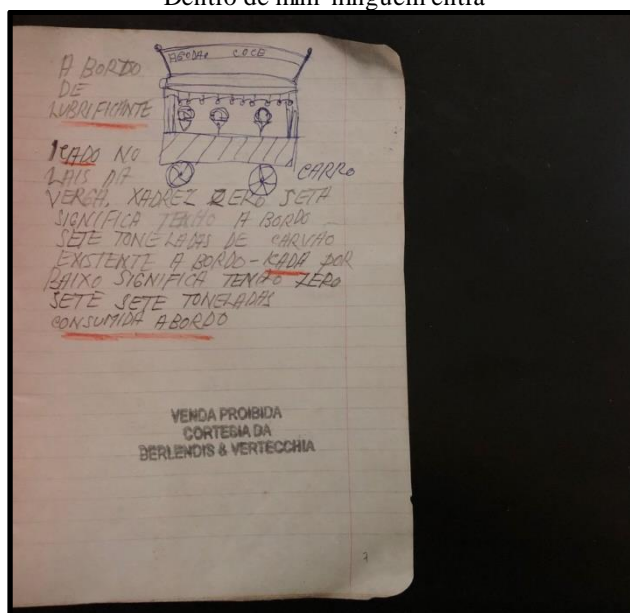 Dentro de mim ninguém entra
A BORDO
DE
LUBRIFICANTE
COCO
CARRO
IÇADO NO
LAIS DA
VERGA, XADREZ ZERO SETA
SIGNIFICA TENHO A BORDO
SETE TONELADAS DE CARVÃO
EXISTENTE A BORDO-IÇADA POR
BAIXO SIGNIFICA TENHO ZERO
SETE SETE TONELADAS
CONSUMIDA ABORDO
VENDA PROIBIDA
CORTESIA DA
BERLENDIS & VERTECCHIA
7